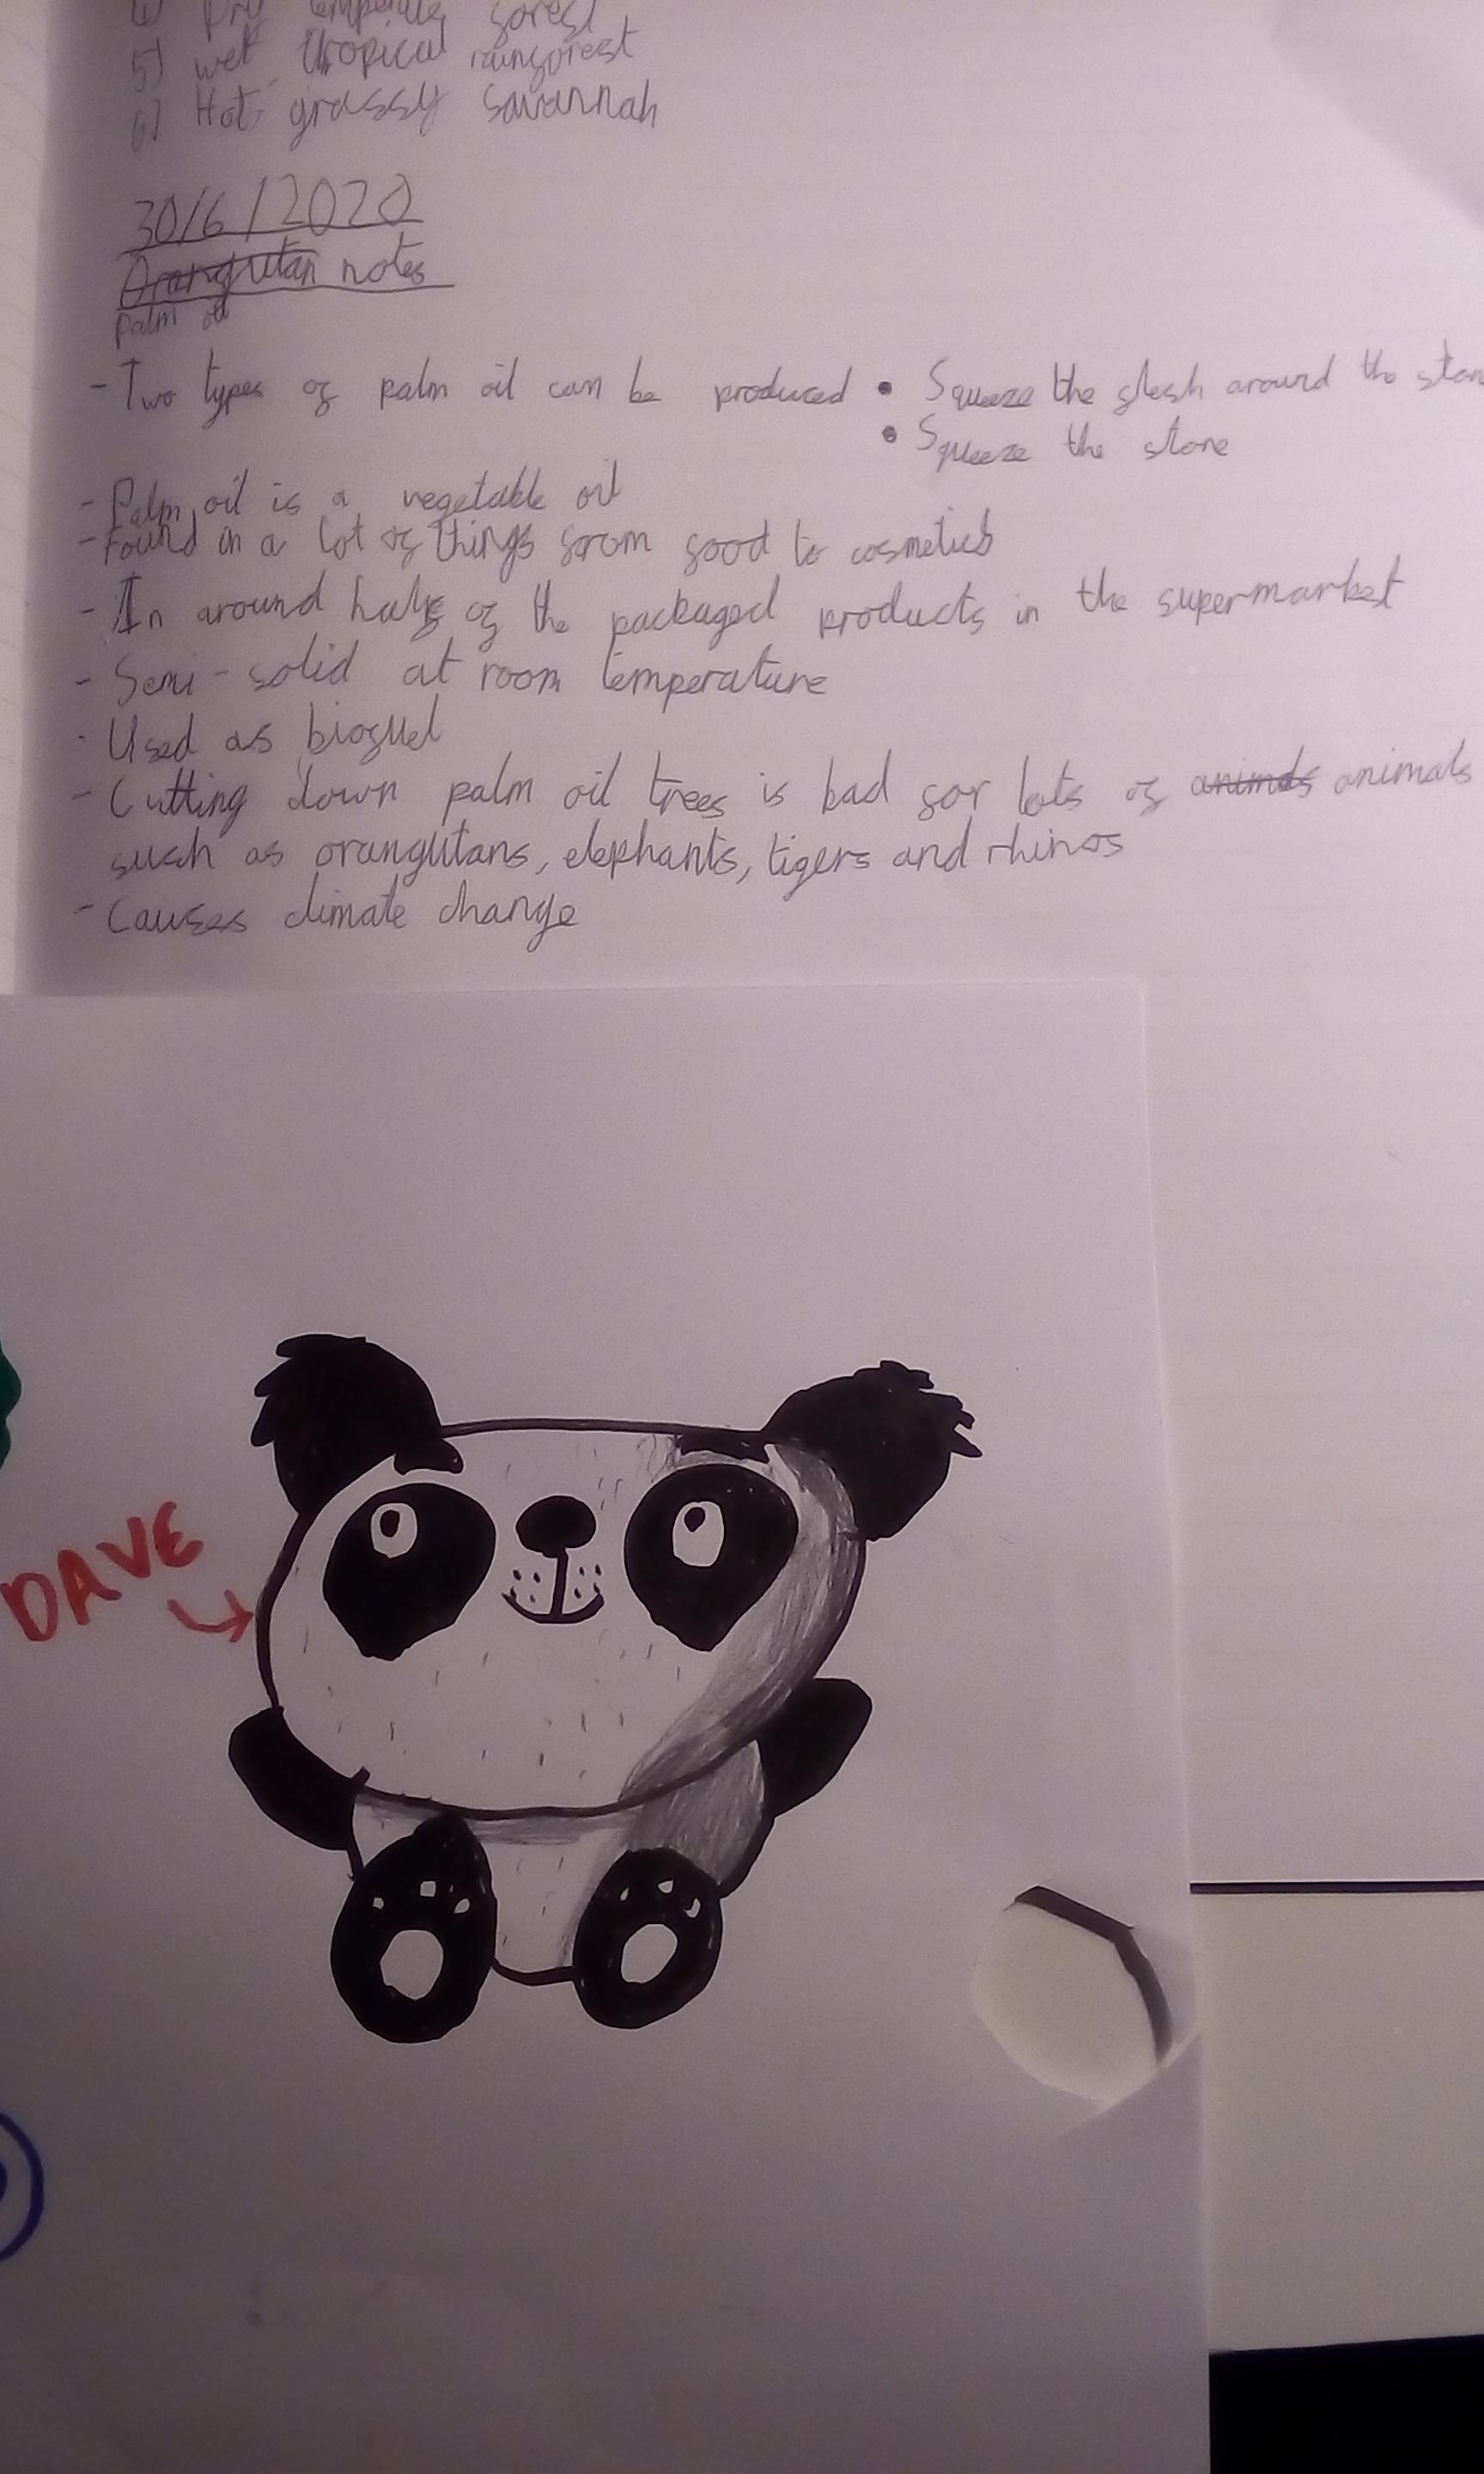 4) Dry temperate forest
5) wet tropical rainforest
6) Hot grassy savannah
30/6/2020
Orangutan notes
palm oil
- Two types of palm oil can be produced • Squeeze the flesh around the
• Squeeze the stone
- Palm oil is a vegetable oil
- Found in a lot of things from food to cosmetics
- In around half of the packaged products in the supermarket
- Semi-solid at room temperature
- Used as biofuel
- Cutting down palm oil trees is bad for lots of animals animals
such as orangutans, elephants, tigers and rhinos
- Causes climate change
DAVE